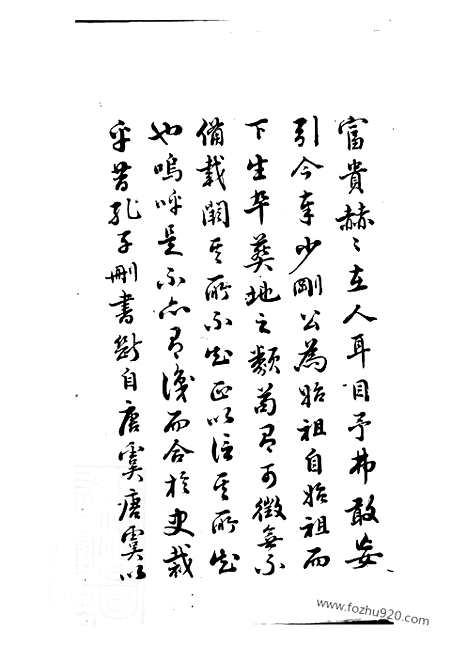 富貴赫〻在人耳目予弗敢妄
引今奉少剛公為始祖自始祖而
下生卒葬地之類苟有可徵無不
備載闕其所不知正以信其所知
也嗚呼是不亦有而合於史裁
乎昔孔子刪書斷自唐虞唐虞以
www.fozhu920.com